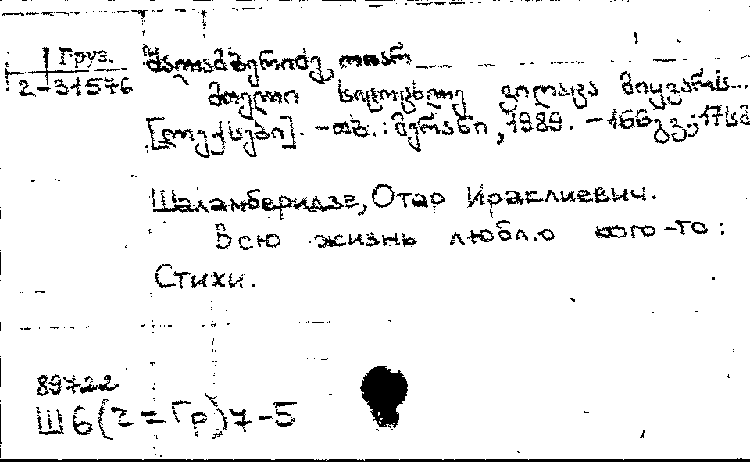 Груз.
2-31576
შალამბერიძე, ოთარ
მთელი სიცოცხლე ვიღაცა მიყვარს...
[ლექსები]. - თბ.: მერანი, 1989. - 166გვ; 17სმ
Шаламберидзе, Отар Ираклиевич.
Всю жизнь люблю кого-то:
Стихи.
89722
Ш6(2=Гр)7-5